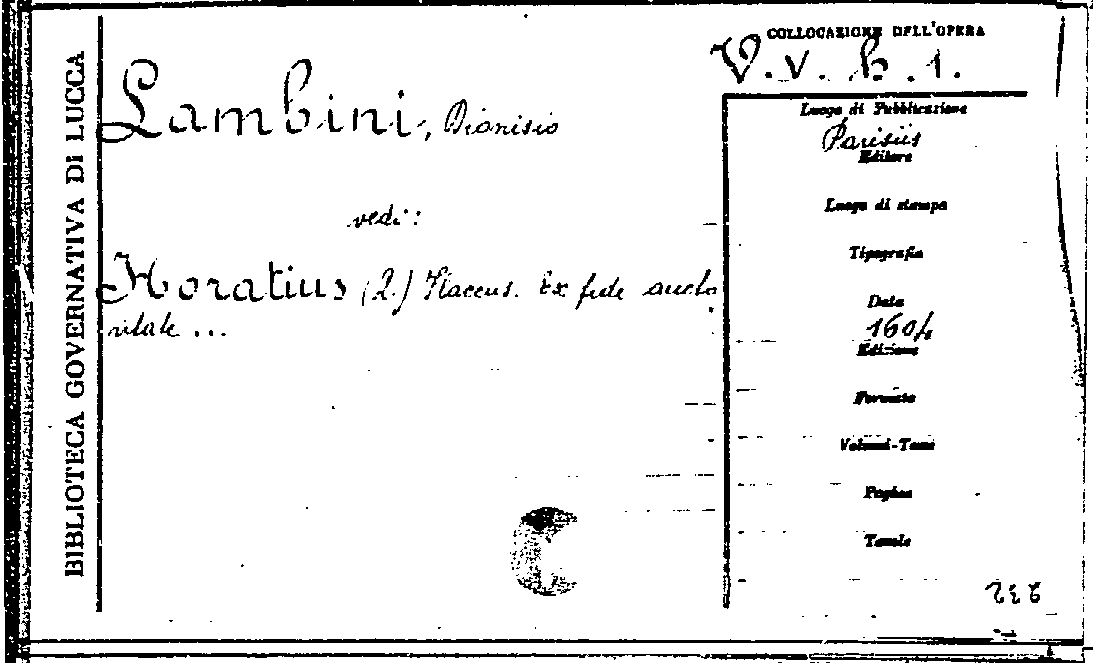 BIBLIOTECA GOVERNATIVA DI LUCCA
Lambini, Dionisio
vedi:
Horatius (Q.) Flaccus. Ex fide aucto
ritate ...
COLLOCAZIONE DELL'OPERA
V. V. h. 1.
Luogo di Pubblicazione
Parisiis
Editore
Luogo di stampa
Tipografia
Data
1604
Edizione
Formato
Volumi-Tomi
Pagine
Tavole
232